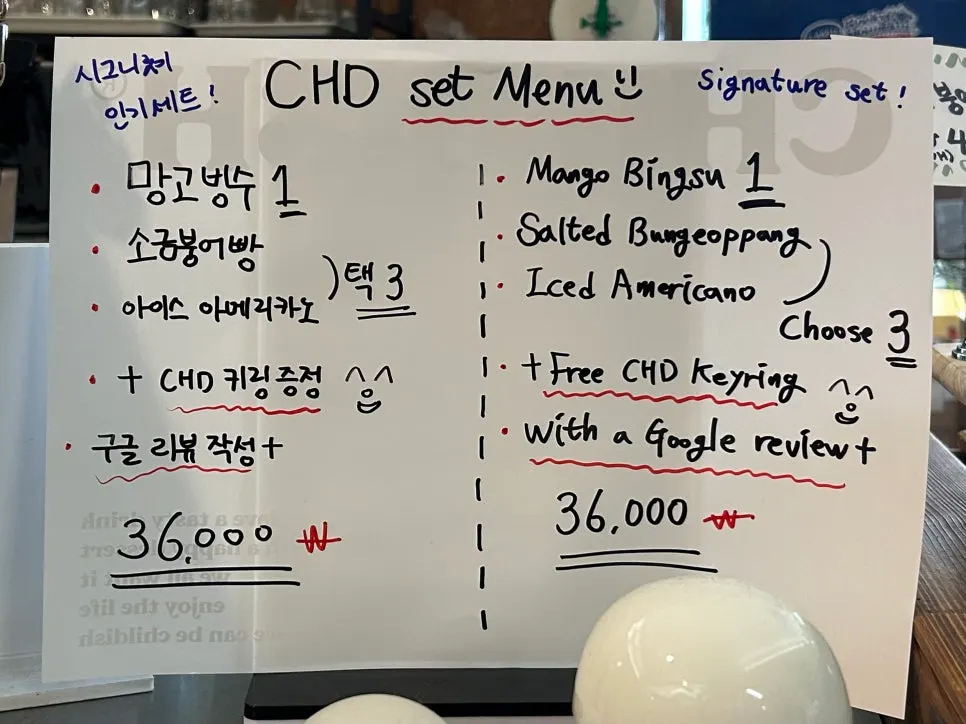 시그니처
인기세트!
CHD set Menu
Signature set!
• 망고빙수 1
• 소금붕어빵
• 아이스 아메리카노
) 택 3
• + CHD 키링 증정 ^^
• 구글 리뷰 작성 +
36,000 ₩
• Mango Bingsu 1
• Salted Bungeoppang
• Iced Americano
Choose 3
• + Free CHD Keyring ^^
• with a Google review +
36,000 ₩
enjoy the life
can be childish